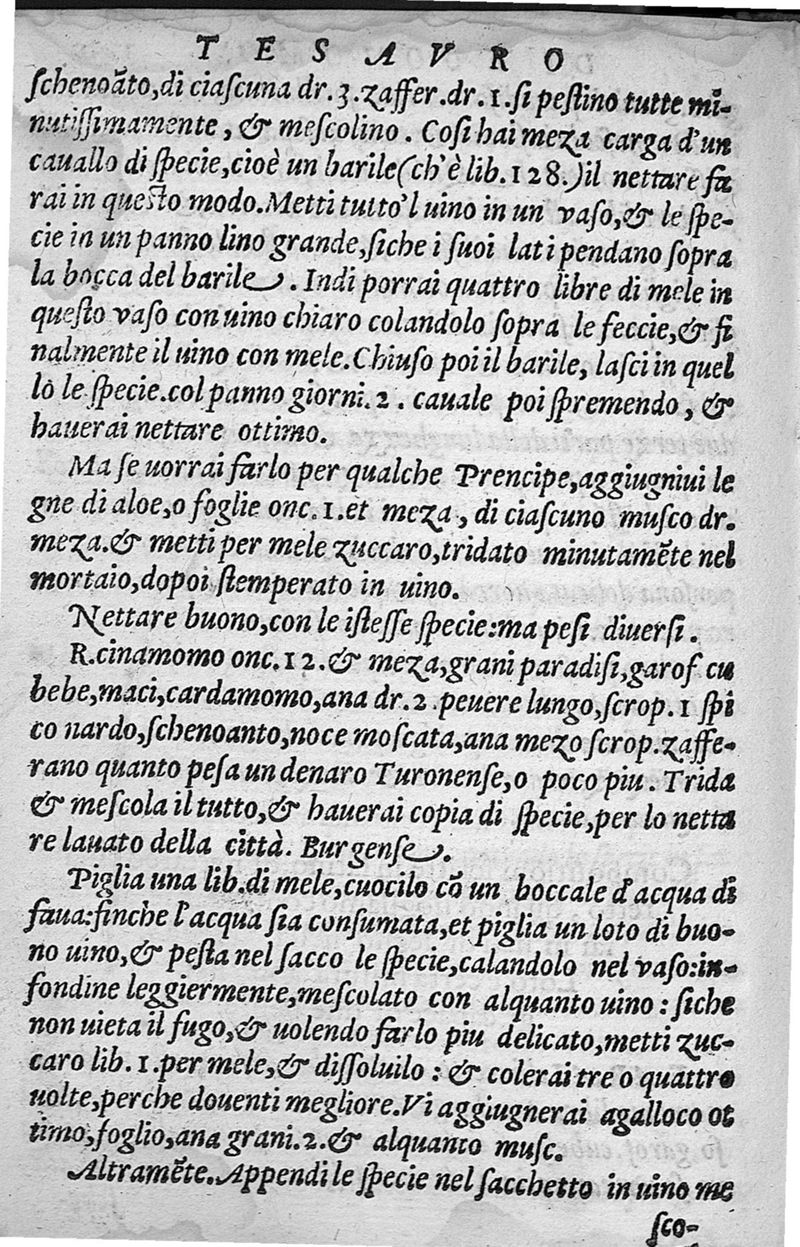 TESAVRO
ſchenoãto, di ciaſcuna dr. 3. zaffer. dr. 1. ſi peſtino tutte mi-
nutiſſimamente, & meſcolino. Coſi hai meza carga d'un
cauallo di ſpecie, cioè un barile (ch'è lib. 128.) il nettare fa
rai in queſto modo. Metti tutto'l uino in un vaſo, & le ſpe-
cie in un panno lino grande, ſiche i ſuoi lati pendano ſopra
la bocca del barile. Indi porrai quattro libre di mele in
queſto vaſo con uino chiaro colandolo ſopra le feccie, & fi
nalmente il uino con mele. Chiuſo poi il barile, laſci in quel
lo le ſpecie. col panno giorni. 2. cauale poi ſpremendo, &
hauerai nettare ottimo.
Ma ſe uorrai farlo per qualche Prencipe, aggiugniui le
gne di aloe, o foglie onc. 1. et meza, di ciaſcuno muſco dr.
meza. & metti per mele zuccaro, tridato minutamẽte nel
mortaio, dopoi ſtemperato in uino.
Nettare buono, con le iſteſſe ſpecie: ma peſi diuerſi.
R. cinamomo onc. 12. & meza, grani paradiſi, garof cu
bebe, maci, cardamomo, ana dr. 2. peuere lungo, ſcrop. 1 ſpi
co nardo, ſchenoanto, noce moſcata, ana mezo ſcrop. zaffe-
rano quanto peſa un denaro Turonenſe, o poco piu. Trida
& meſcola il tutto, & hauerai copia di ſpecie, per lo netta
re lauato della città. Burgenſe.
Piglia una lib. di mele, cuocilo cõ un boccale d'acqua di
faua: finche l'acqua ſia conſumata, et piglia un loto di buo-
no uino, & peſta nel ſacco le ſpecie, calandolo nel vaſo: in-
fondine leggiermente, meſcolato con alquanto uino: ſiche
non uieta il fugo, & uolendo farlo piu delicato, metti zuc-
caro lib. 1. per mele, & diſſoluilo: & colerai tre o quattro
uolte, perche douenti megliore. Vi aggiugnerai agalloco ot
timo, foglio, ana grani. 2. & alquanto muſc.
Altramẽte. Appendi le ſpecie nel ſacchetto in uino me
ſco-